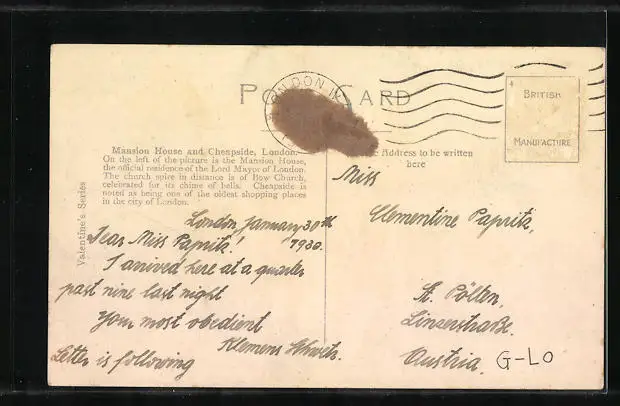 POST CARD
LONDON
BRITISH
MANUFACTURE
Mansion House and Cheapside, London.
On the left of the picture is the Mansion House,
the official residence of the Lord Mayor of London.
The church spire in distance is of Bow Church,
celebrated for its chime of bells. Cheapside is
noted as being one of the oldest shopping places
in the city of London.
Valentine's Series
Address to be written
here
London, January 30th
1930.
Dear Miss Papritz!
I arrived here at a quarter
past nine last night
Your most obedient
Klemens
Letter is following
Miss
Clementine Papritz,
St. Pölten,
Linzerstraße.
Austria.
G-LO